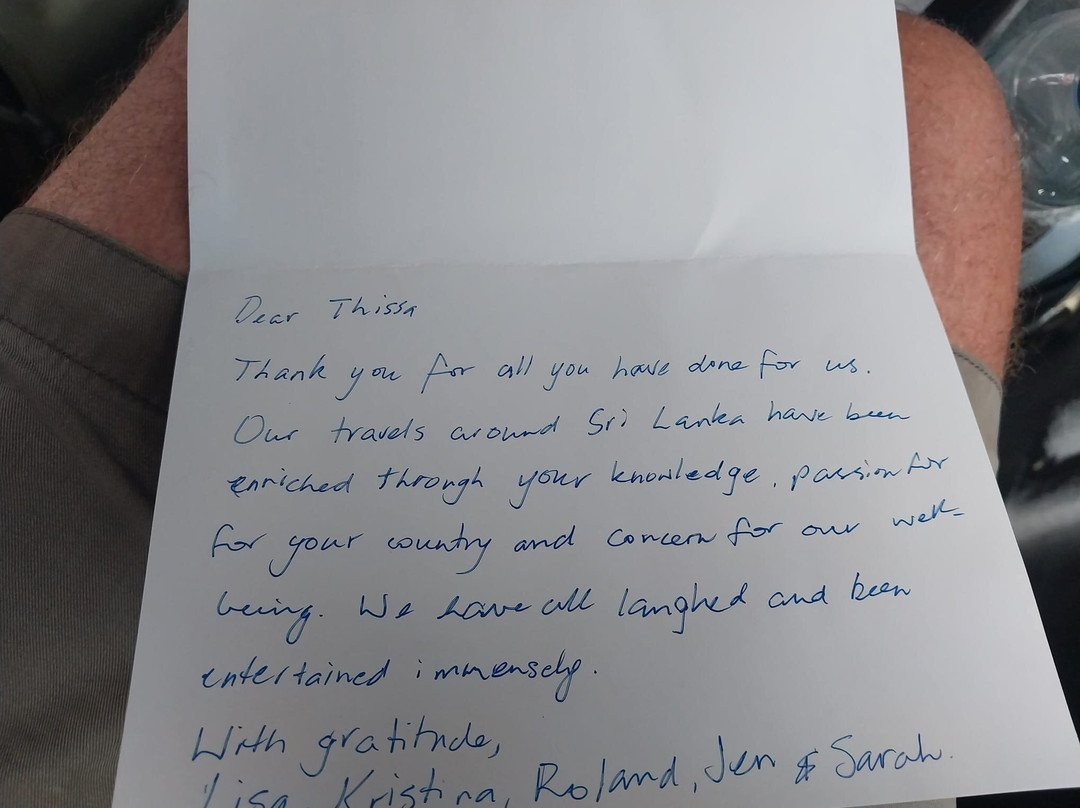 Dear Thissa
Thank you for all you have done for us.
Our travels around Sri Lanka have been
enriched through your knowledge, passion for
for your country and concern for our well-
being. We have all laughed and been
entertained immensely.
With gratitude,
Lisa Kristina, Roland, Jen & Sarah.